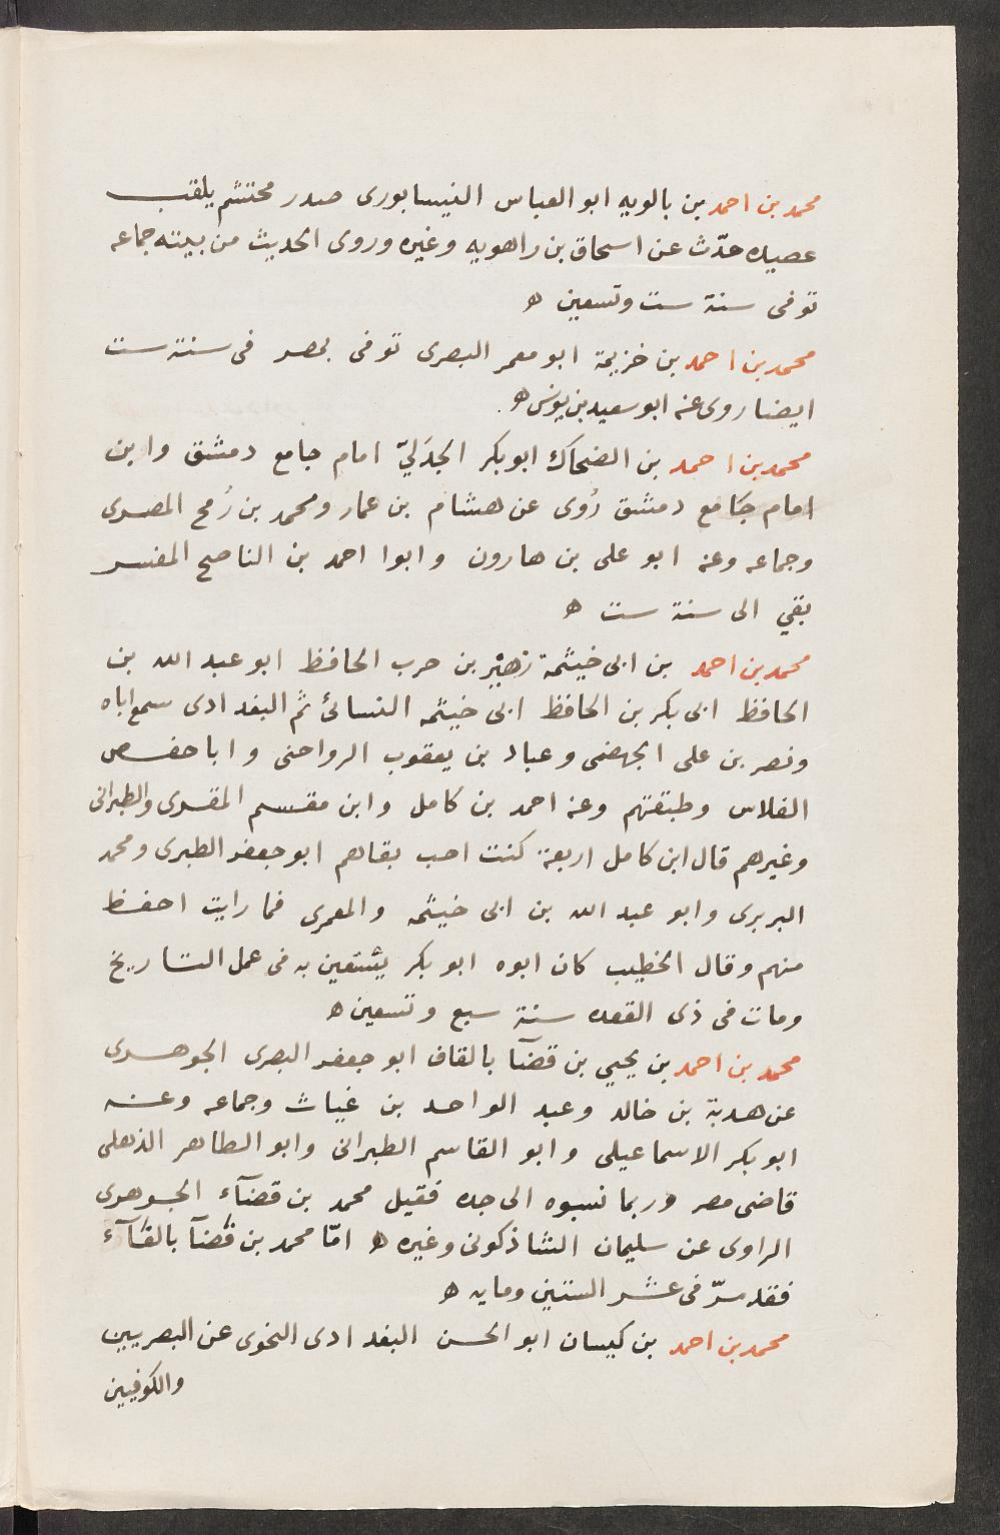 محمد بن احمد بن بالويه ابو العباس النيسابورى صدر محتشم يلقب
عصيده حدّث عن اسحاق بن راهويه وغيره وروى الحديث من بيته جماعه
توفى سنة ست وتسعين ه
محمد بن احمد بن خزيمة ابو معمر البصرى توفى بمصر فى سنة ست
ايضا روى عنه ابو سعيد بن يونس ه
محمد بن احمد بن الضحاك ابو بكر الجدَليّ امام جامع دمشق وابن
امام جامع دمشق رُوى عن هشام بن عمار ومحمد بن رُمح المصرى
وجماعه وعنه ابو على بن هارون وابوا احمد بن الناصح المفسر
بقي الى سنة ست ه
محمد بن احمد بن ابى خيثمة زهيْر بن حرب الحافظ ابو عبد الله بن
الحافظ ابى بكر بن الحافظ ابى خيثمه النسائ ثم البغدادى سمع اباه
ونصر بن على الجهضمى وعباد بن يعقوب الرواجنى وابا حفص
الفلاس وطبقتهم وعنه احمد بن كامل وابن مقسم المقرى والطبرانى
وغيرهم قال ابن كامل اربعة كنت احب بقاهم ابو جعفر الطبرى ومحمد
البربرى وابو عبد الله بن ابى خيثمه والمعمرى فما رايت احفظ
منهم وقال الخطيب كان ابوه ابو بكر يستعين به فى عمل التاريخ
ومات فى ذى القعده سنة سبع وتسعين ه
محمد بن احمد بن يحيي بن قضآ بالقاف ابو جعفر البصرى الجوهرى
عن هدبة بن خالد وعبد الواحد بن غياث وجماعه وعنه
ابو بكر الاسماعيلى وابو القاسم الطبرانى وابو الطاهر الذهلى
قاضى مصر وربما نسبوه الى جده فقيل محمد بن قضآء الجوهرى
الراوى عن سليمان الشاذكونى وغيره ه امّا محمد بن فضآ بالفآء
فقد مرّ فى عشر الستين ومايه ه
محمد بن احمد بن كيسان ابو الحسن البغدادى النحوى عن البصريين
والكوفيين